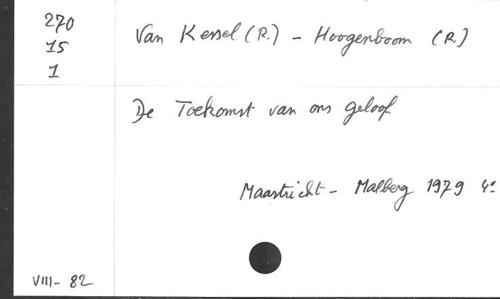 270
15
1
Van Kessel (R.) - Hoogenboom (R.)
De Toekomst van ons geloof
Maastricht - Malberg 1979 4°
VIII - 82